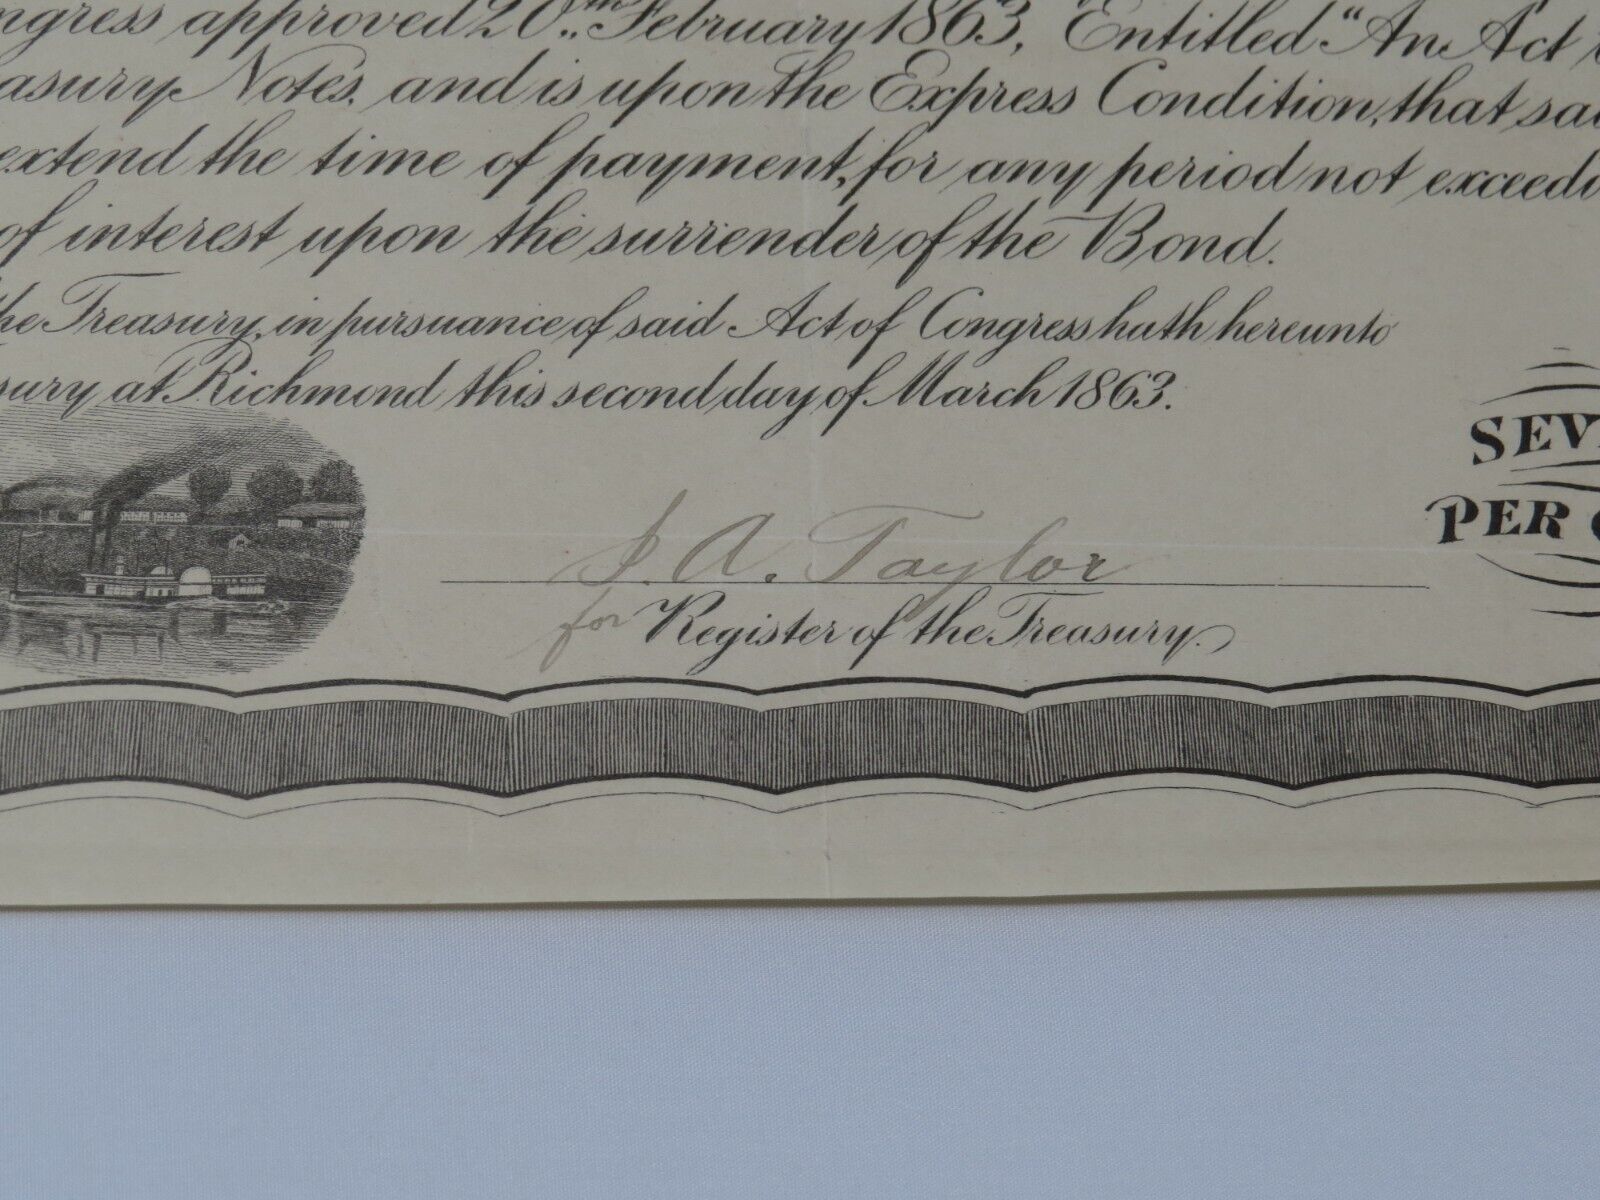 ngress approved 20th February 1863, Entitled "An Act
asury Notes, and is upon the Express Condition, that sa
extend the time of payment, for any period not exceedi
of interest upon the surrender of the Bond.
he Treasury, in pursuance of said Act of Congress hath hereunto
sury at Richmond this second day of March 1863.
SEV
PER C
J. A. Taylor
for Register of the Treasury.